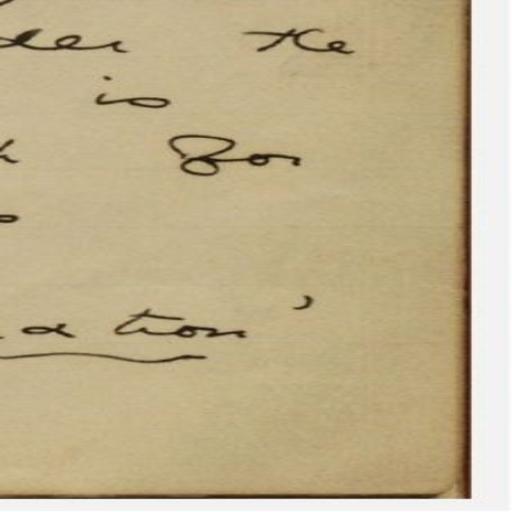 der the
is
for
a tion'